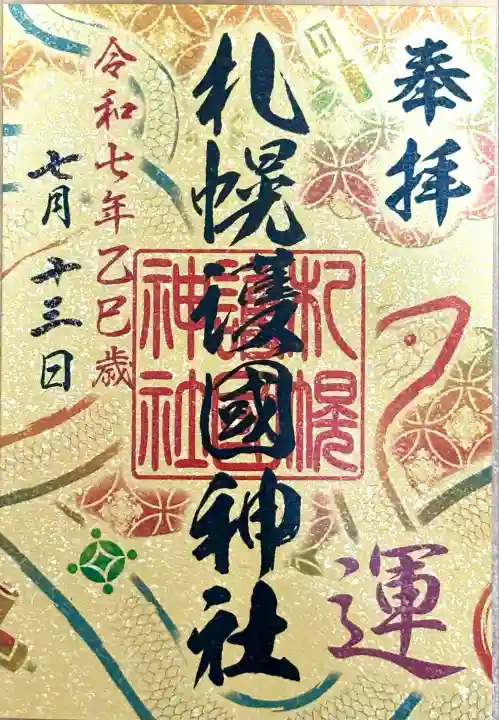 奉拝
札幌護國神社
札幌
護國
神社
令和七年乙巳歳
七月十三日
運